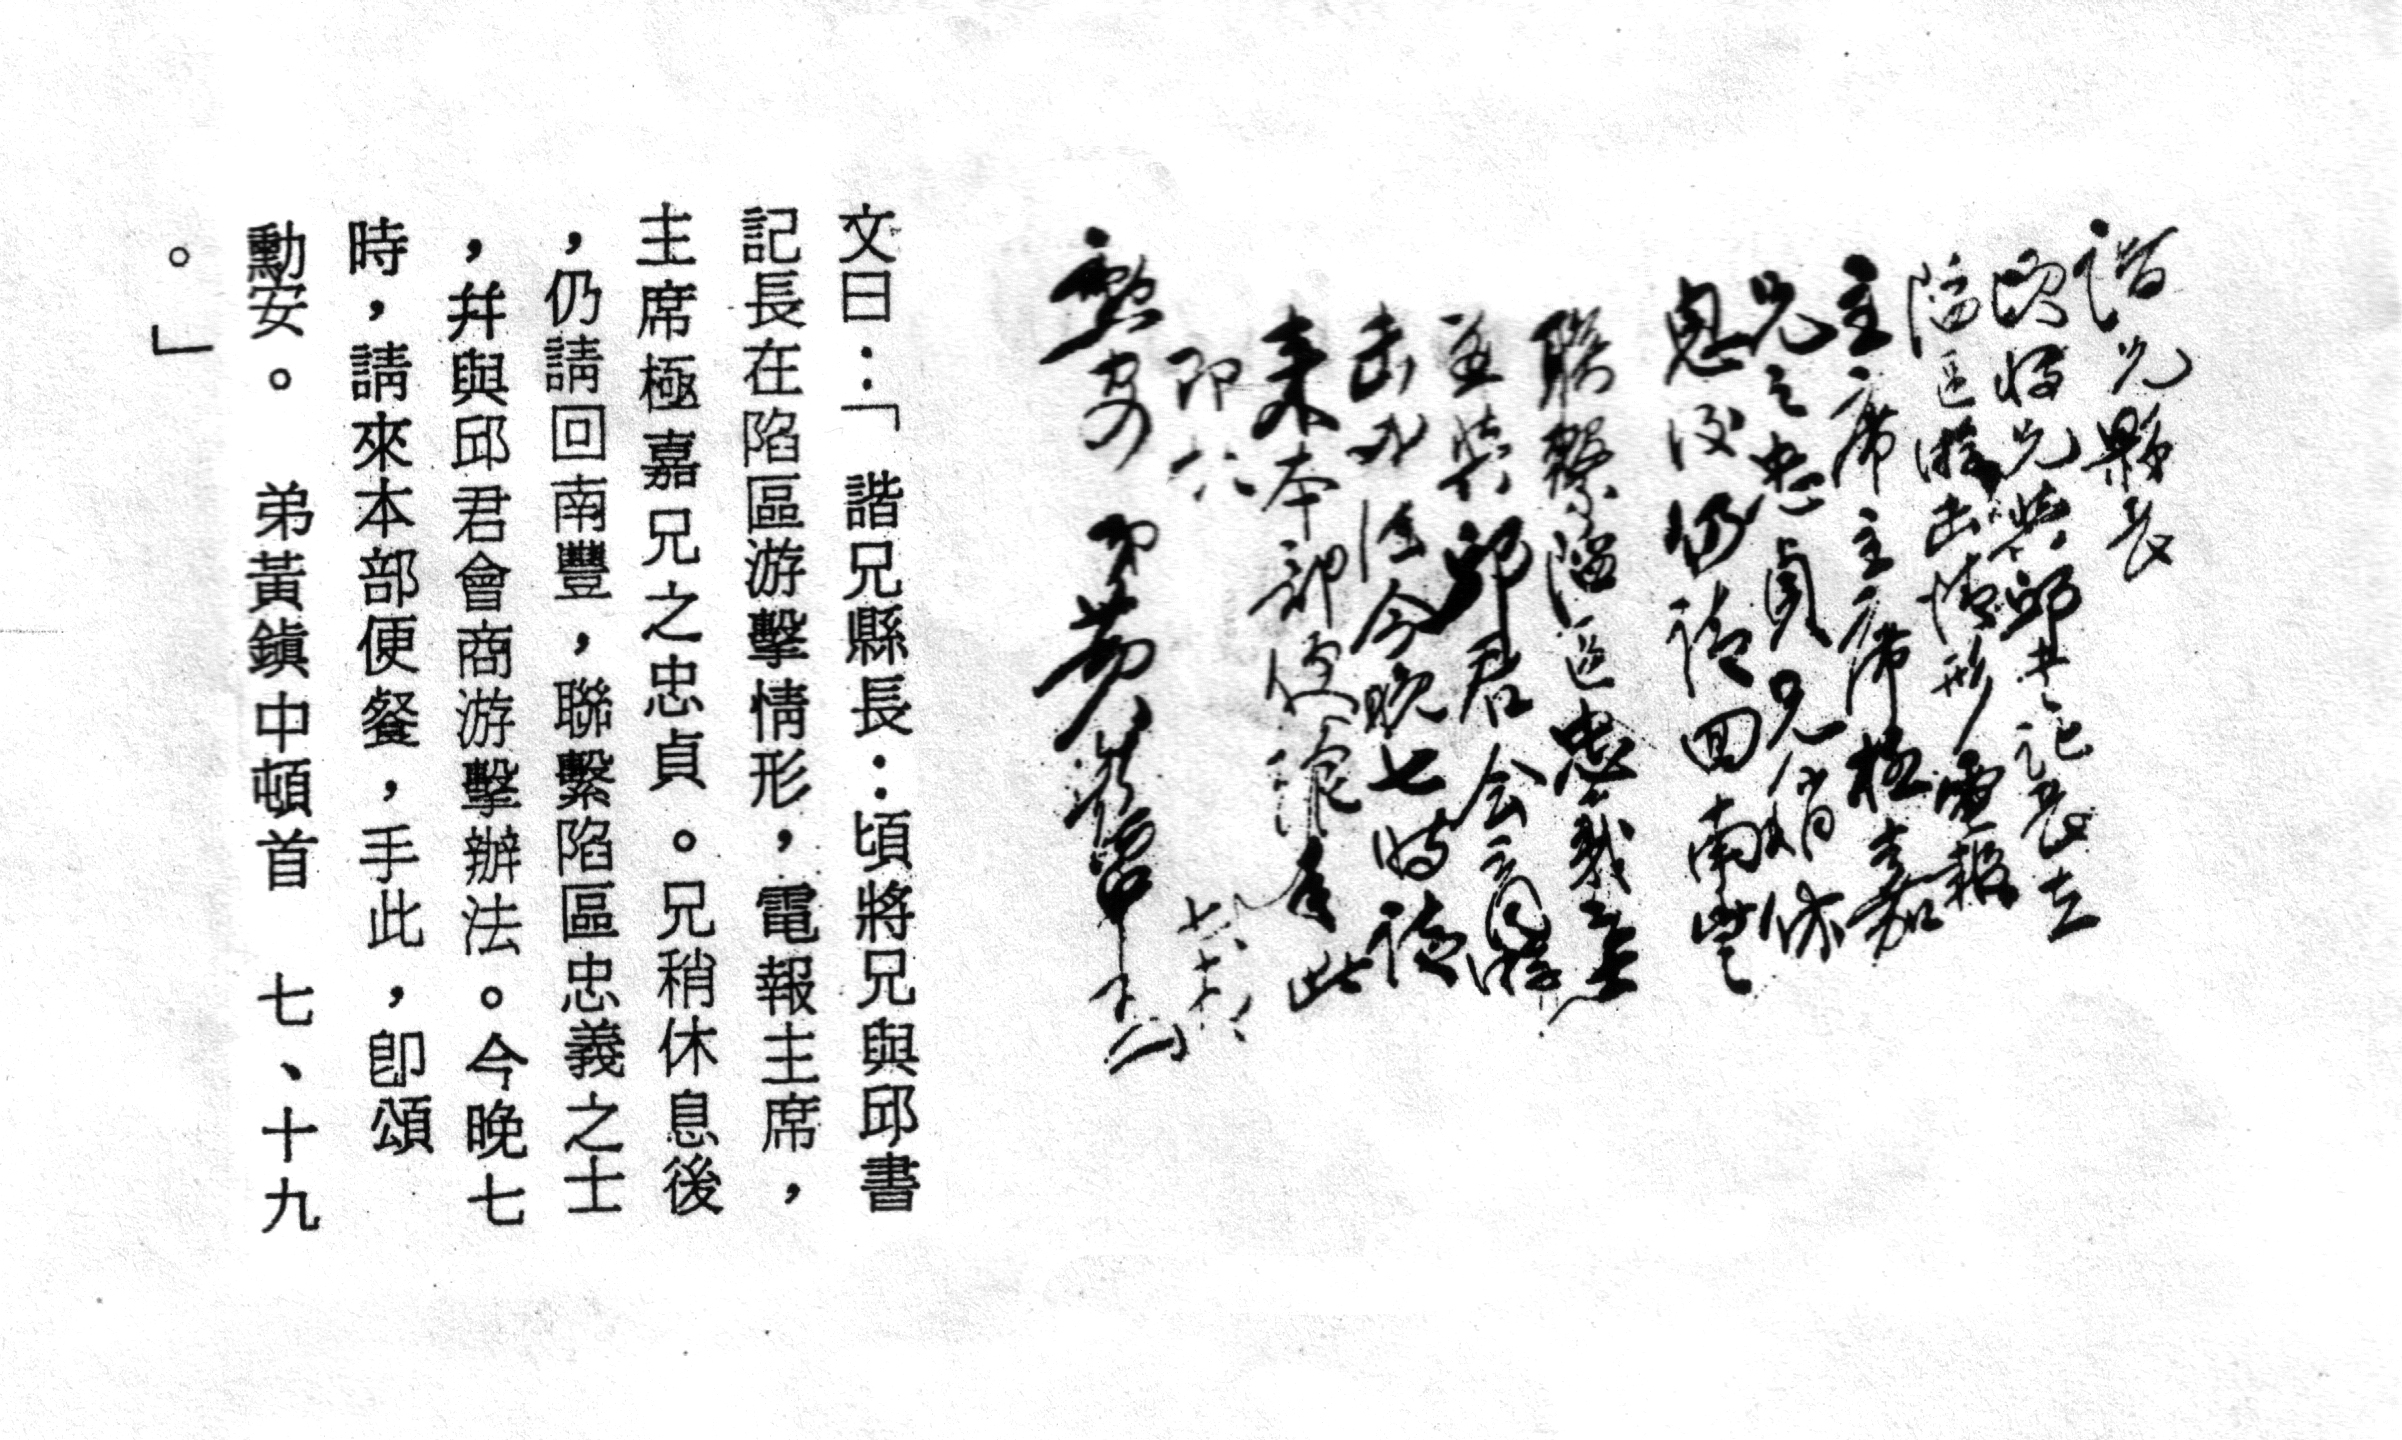 諧兄縣長
頃將兄與邱书記長在
陷區游击情形電報
主席主席極嘉
兄之忠貞兄稍休
息後仍請回南豐
聯繫陷區忠義之士
並與邱君会商游
击办法今晚七時請
来本部便餐手此
即頌
勳安 弟黃鎮中
文曰：「諧兄縣長：頃將兄與邱書
記長在陷區游擊情形，電報主席，
主席極嘉兄之忠貞。兄稍休息後
，仍請回南豐，聯繫陷區忠義之士
，幷與邱君會商游擊辦法。今晚七
時，請來本部便餐，手此，卽頌
勳安。　弟黃鎭中頓首　七、十九
。」